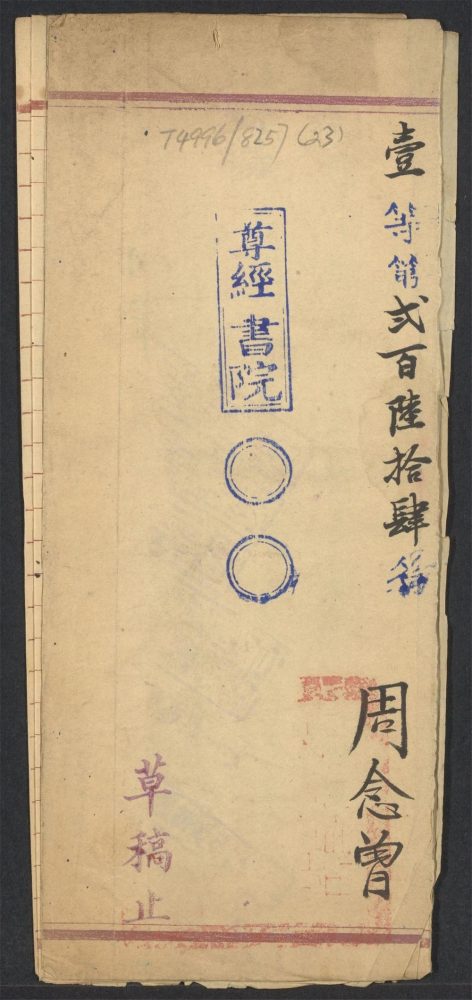 T4996/8257 (23)
壹等第弍百陸拾肆名
周念曾
尊經書院
草稿止